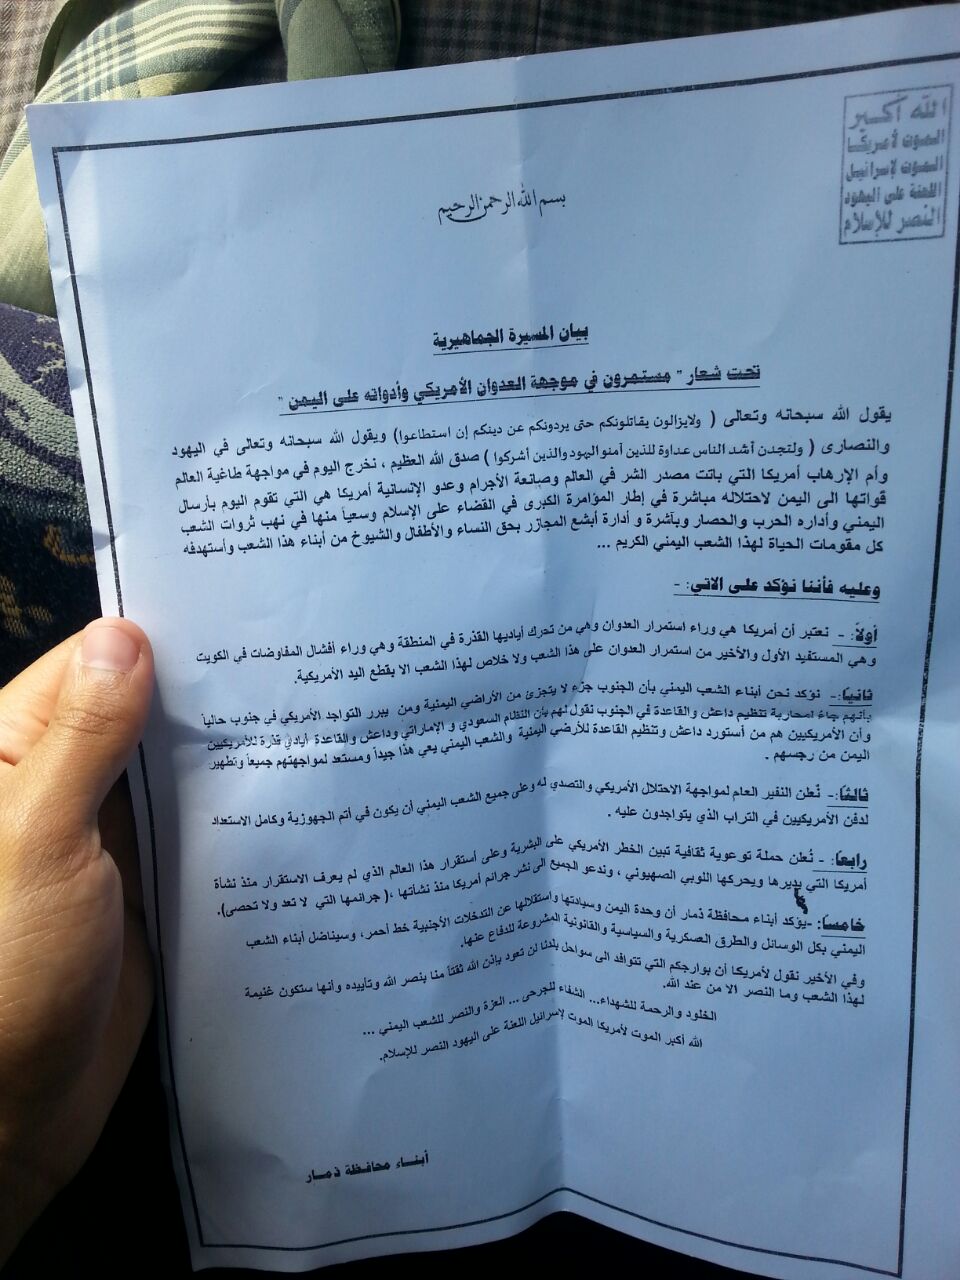 الله أكبر
الموت لأمريكا
الموت لإسرائيل
اللعنة على اليهود
النصر للإسلام
بسم الله الرحمن الرحيم
بيان المسيرة الجماهيرية
تحت شعار " مستمرون في موجهة العدوان الأمريكي وأدواته على اليمن "
يقول الله سبحانه وتعالى ( ولايزالون يقاتلونكم حتى يردونكم عن دينكم إن استطاعوا) ويقول الله سبحانه وتعالى في اليهود
والنصارى ( ولتجدن أشد الناس عداوة للذين آمنو اليهود والذين أشركوا ) صدق الله العظيم ، نخرج اليوم في مواجهة طاغية العالم
وأم الإرهاب أمريكا التي باتت مصدر الشر في العالم وصانعة الأجرام وعدو الإنسانية أمريكا هي التي تقوم اليوم بأرسال
قواتها الى اليمن لاحتلاله مباشرة في إطار المؤامرة الكبرى في القضاء على الإسلام وسعياً منها في نهب ثروات الشعب
اليمني وأداره الحرب والحصار وبآشرة و أدارة أبشع المجازر بحق النساء والأطفال والشيوخ من أبناء هذا الشعب وأستهدفه
كل مقومات الحياة لهذا الشعب اليمني الكريم ...
وعليه فأننا نؤكد على الاتي: -
أولاً: - نعتبر أن أمريكا هي وراء استمرار العدوان وهي من تحرك أياديها القذرة في المنطقة وهي وراء أفشال المفاوضات في الكويت
وهي المستفيد الأول والأخير من استمرار العدوان على هذا الشعب ولا خلاص لهذا الشعب الا بقطع اليد الأمريكية.
ثانيا:- نؤكد نحن أبناء الشعب اليمني بأن الجنوب جزء لا يتجزئ من الأراضي اليمنية ومن يبرر التواجد الأمريكي في جنوب حالياً
بأنهم جاءَ لمحاربة تنظيم داعش والقاعدة في الجنوب نقول لهم بأن النظام السعودي و الإماراتي وداعش والقاعدة أيادي قذرة للأمريكيين
وأن الأمريكيين هم من أستورد داعش وتنظيم القاعدة للأرضي اليمنية والشعب اليمني يعي هذا جيداً ومستعد لمواجهتهم جميعاً وتطهير
اليمن من رجسهم .
ثالثا:- نُعلن النفير العام لمواجهة الاحتلال الأمريكي والتصدي له وعلى جميع الشعب اليمني أن يكون في أتم الجهوزية وكامل الاستعداد
لدفن الأمريكيين في التراب الذي يتواجدون عليه .
رابعا: - نُعلن حملة توعوية ثقافية تبين الخطر الأمريكي على البشرية وعلى أستقرار هذا العالم الذي لم يعرف الاستقرار منذ نشأة
أمريكا التي يديرها ويحركها اللوبي الصهيوني ، وندعو الجميع الى نشر جرائم أمريكا منذ نشأتها ،( جرائمها التي لا تعد ولا تحصى).
خامسا: -يؤكد أبناء محافظة ذمار أن وحدة اليمن وسيادتها واستقلالها عن التدخلات الأجنبية خط أحمر، وسيناضل أبناء الشعب
اليمني بكل الوسائل والطرق العسكرية والسياسية والقانونية المشروعة للدفاع عنها.
وفي الأخير نقول لأمريكا أن بوارجكم التي تتوافد الى سواحل بلدنا لن تعود بإذن الله ثقتاً منا بنصر الله وتأييده وأنها ستكون غنيمة
لهذا الشعب وما النصر الا من عند الله.
الخلود والرحمة للشهداء... الشفاء للجرحى ... العزة والنصر للشعب اليمني ...
الله أكبر الموت لأمريكا الموت لإسرائيل اللعنة على اليهود النصر للإسلام.
أبناء محافظة ذمار